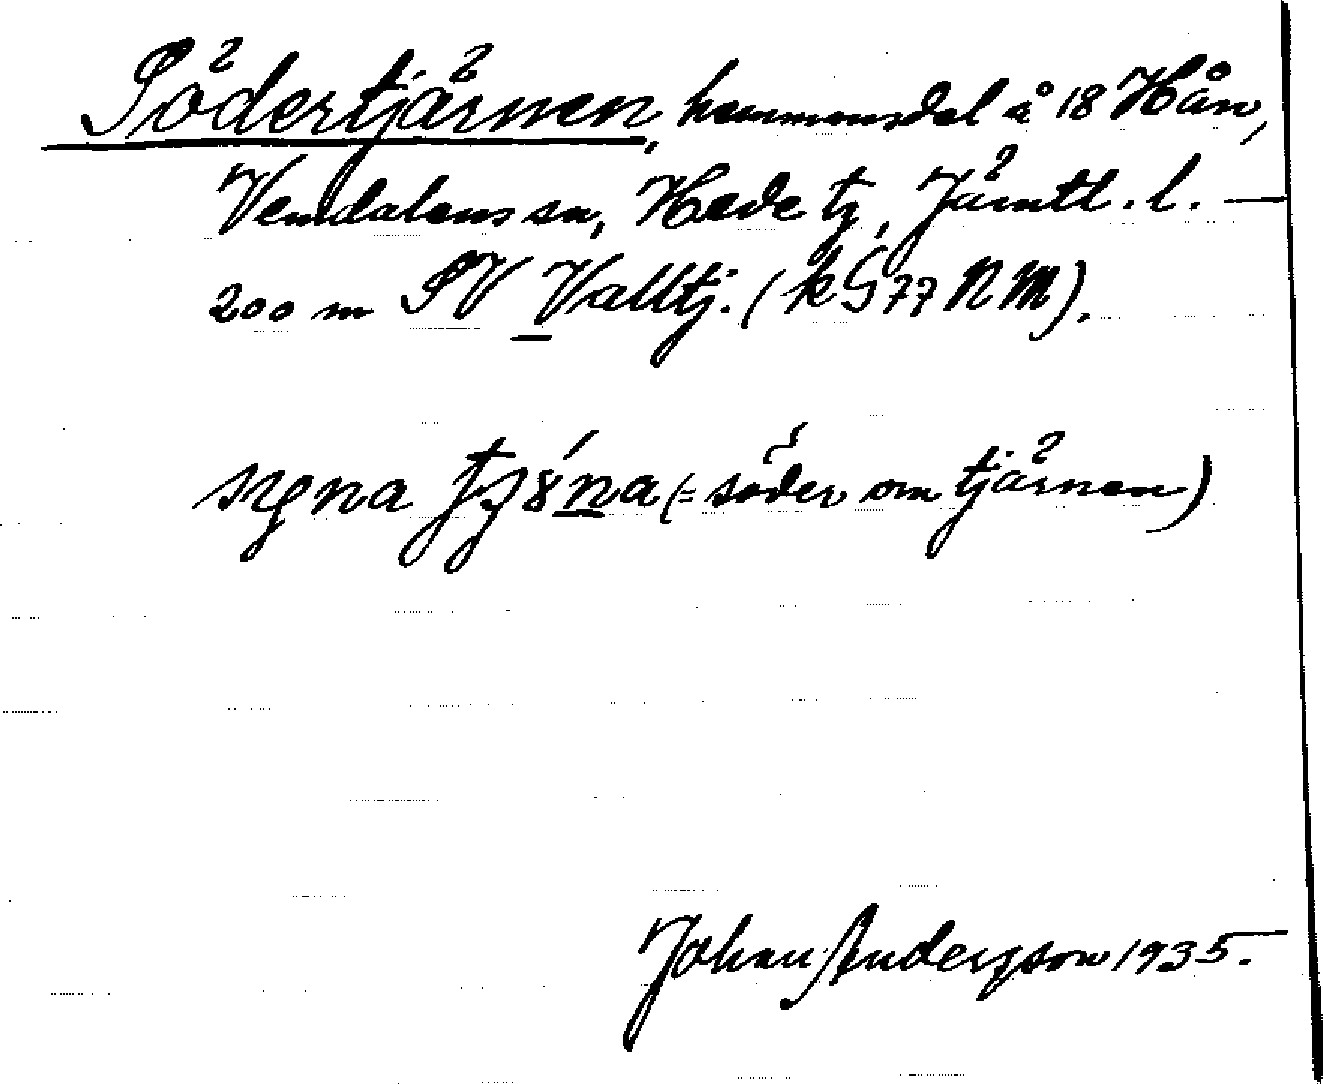 Södertjärnen, hemmansdel å 18 Hån,
Vemdalens sn, Hede tg, Jämtl. l. —
200 m SV Valltj. (k G 77 NM).
(= söder om tjärnen)
Johan Andersson 1935.